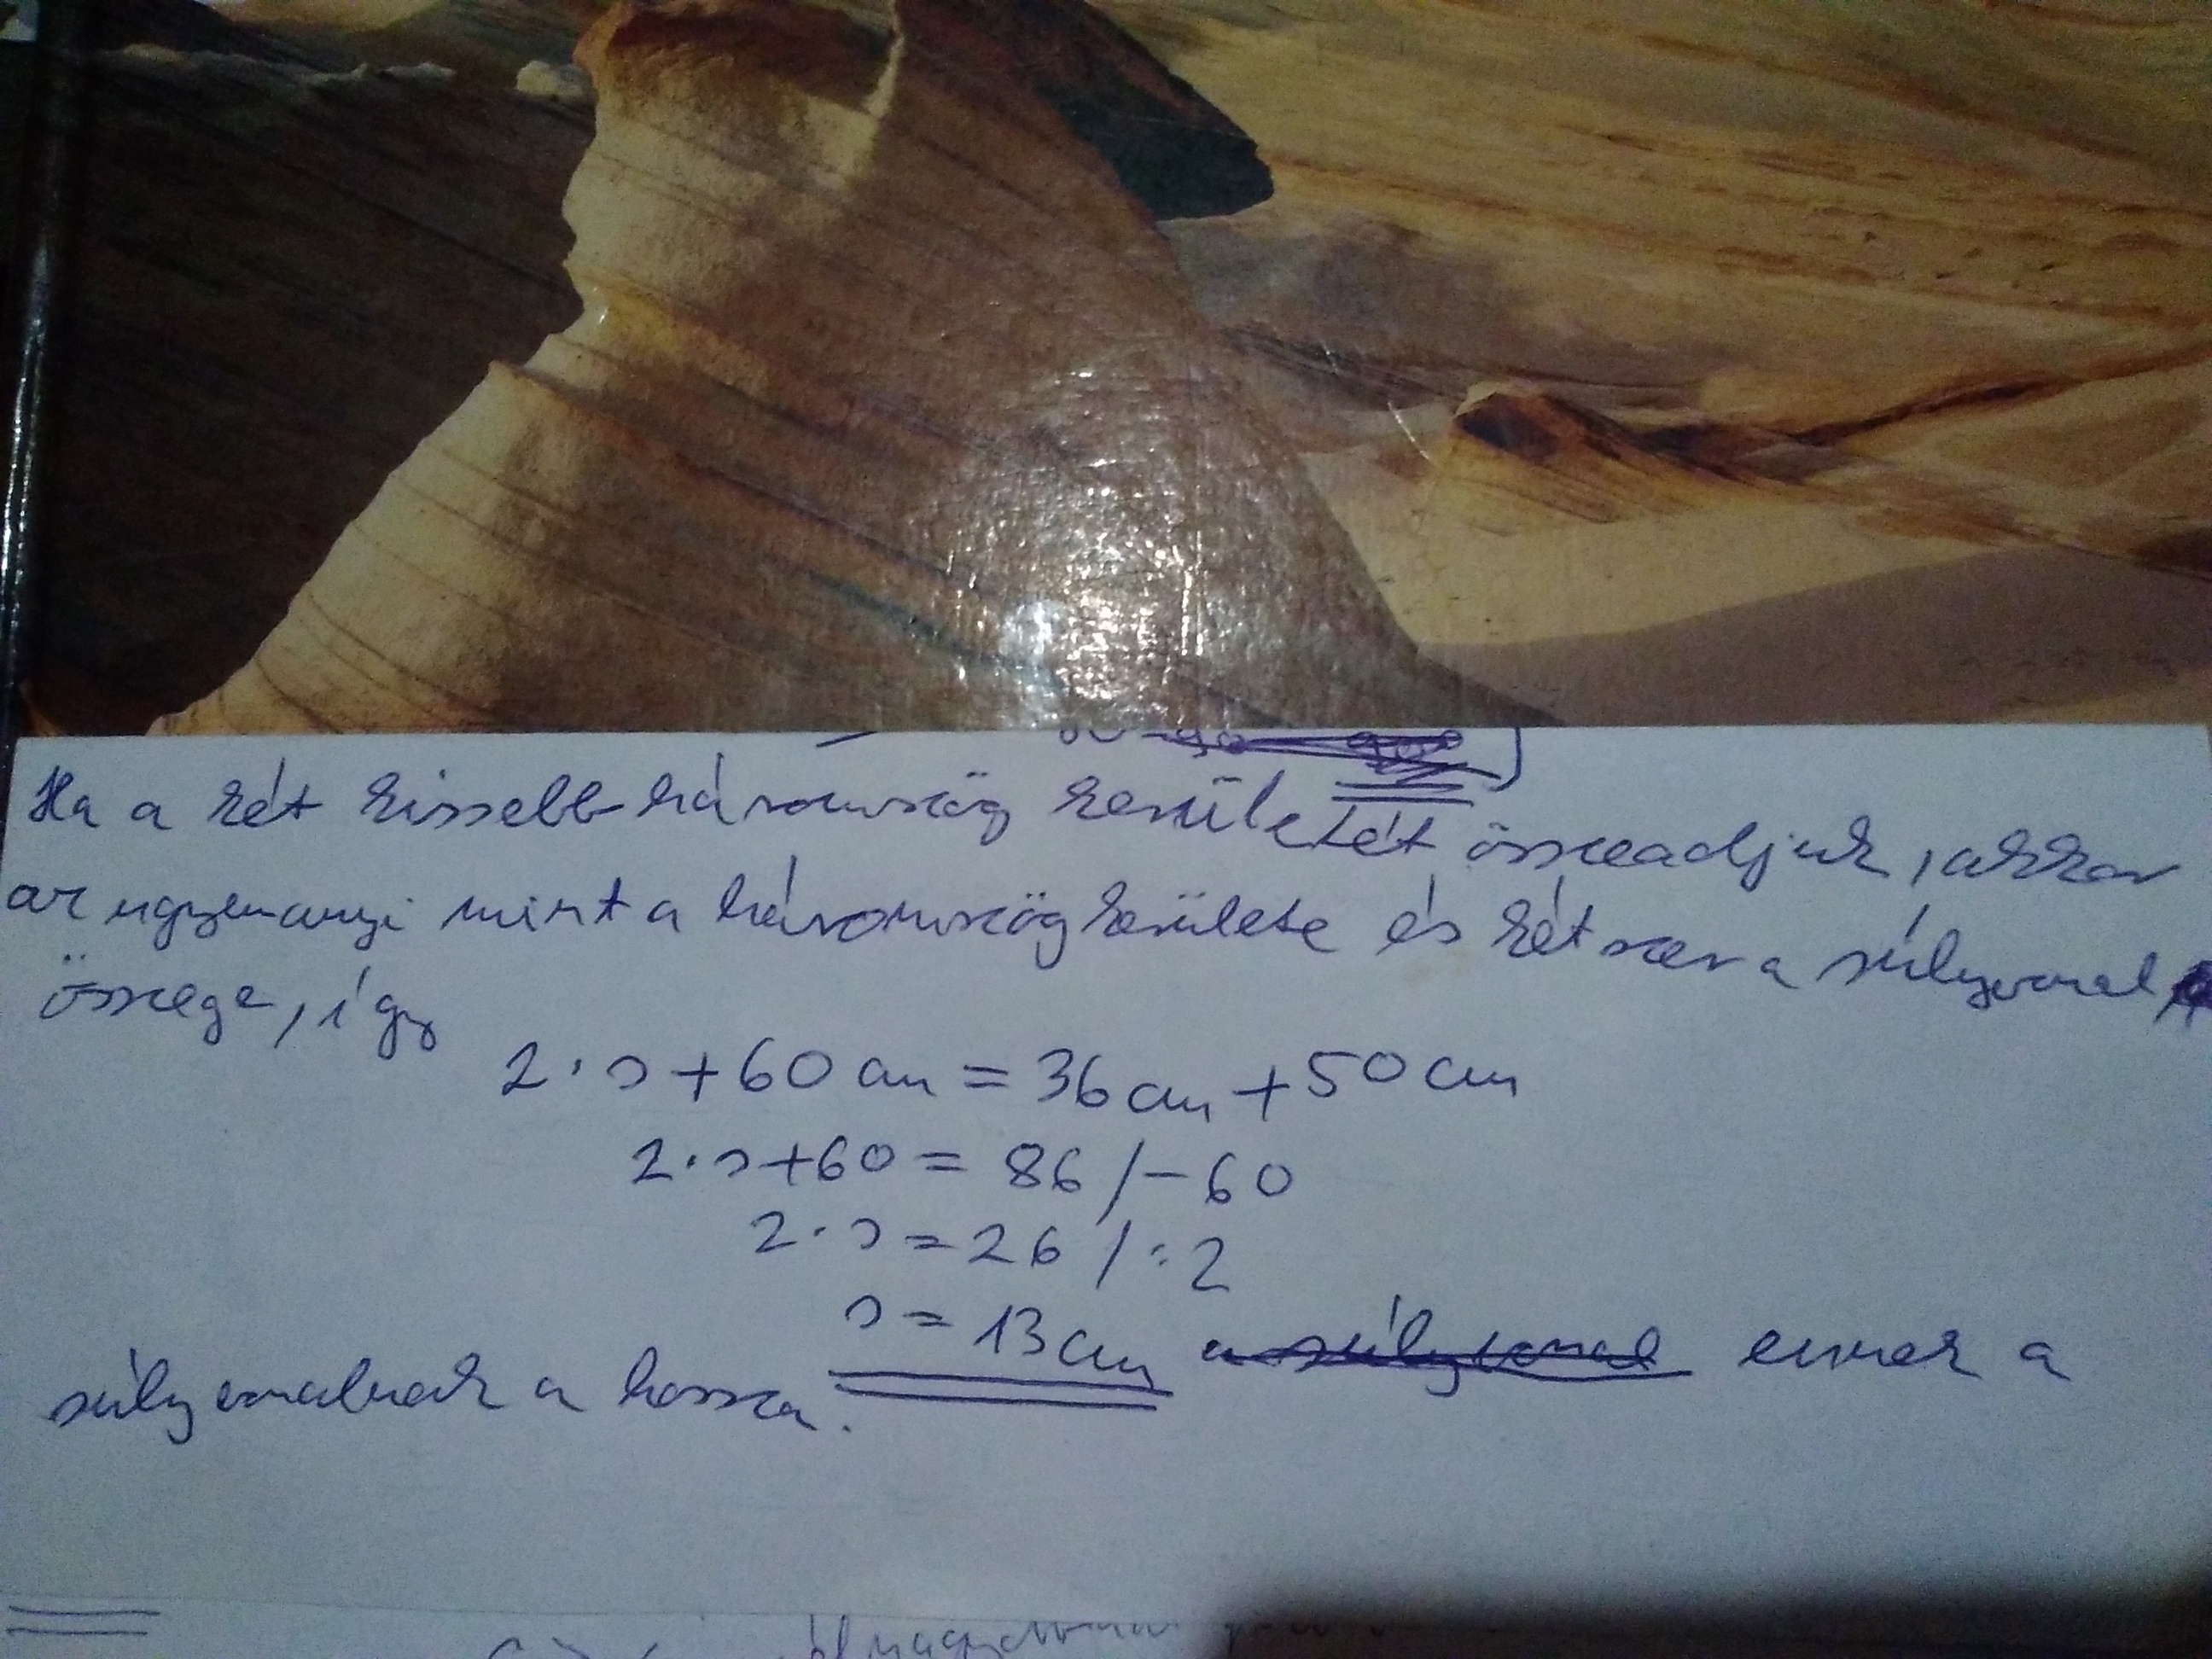 Ha a két kissebb háromszög kerületét összeadjuk, akkor
az ugyenanyi mint a háromszög kerülete és kétszer a súlyvonal
összege, így
2·s+60cm=36cm+50cm
2·s+60=86/-60
2·s=26/:2
s=13cm a súlyvonal ennek a
súlyvonalnak a hossza.